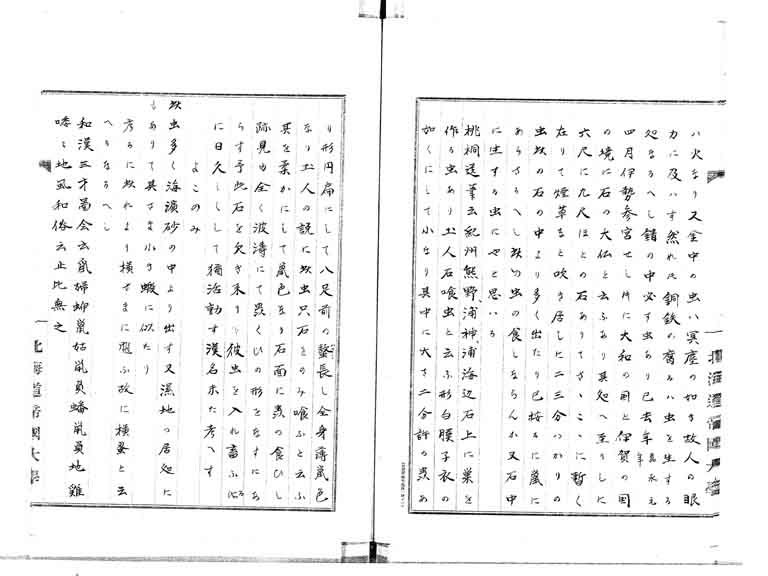 ハ火なり又金中の虫ハ冥塵の如き故人の眼
力に及ハす然れ共銅鉄の腐るハ虫を生する
処なるへし錯の中必す虫あり已去年嘉永元年
四月伊勢参宮せし所に大和の国と伊賀の国
の境に石の大仏と云ふあり其処へ至りしに
六尺に九尺ほとの石ありてさゝこゝに暫く
在りて煙草など吹き居しに二三分つかりの
虫此の石の中より多く出たり已按るに嵐に
あらさるへし此の虫の食しならんか又石中
に生する虫にやと思いる
桃桐遺筆云紀州熊野浦神浦海辺石上に巣を
作る虫あり土人石喰虫と云ふ形白膜子衣の
如くにして小なり其中に大さ二分許の虫あ
り形円扁にして八足前の螯長し全身薄鼠色
なり土人の説に此虫只石をのみ喰ふと云ふ
其を柔かにして鼠色なり石面に虫の食ひし
跡見ゆ全く波濤にて虫くひの形をなすにあ
らす予此石を欠き来りて彼虫を入れ畜ふに
に日久しくして猶活動す漢名未た考へす
よこのみ
此虫多く海濵砂の中より出す又湿地の居処に
もありて其さま小き蝦に似たり
考るに此れより横さまに遊ふ故に横蚤と云
へるなるへし
和漢三才圖会云鼠婦𧉅鼠姑鼠負蟠鼠負地雞
㗋ゝ地虱和俗云止比無之
北海道帝国大学